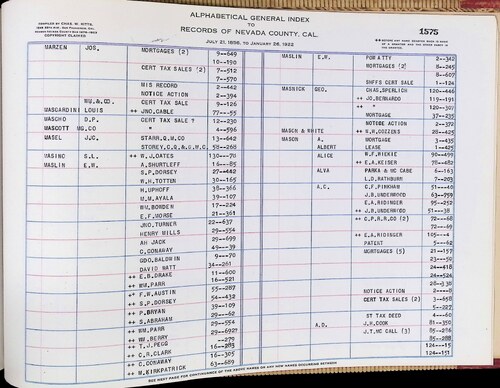 COMPILED BY CHAS. W. KITTS,
COPYRIGHT CLAIMED
ALPHABETICAL GENERAL INDEX
TO
RECORDS OF NEVADA COUNTY, CAL.
JULY 21, 1856, TO JANUARY 26, 1922
1575
MARZEN JOS. MORTGAGES (2) 9--649
10--190
CERT TAX SALES (2) 7--512
7--570
MIS RECORD 2--442
NOTICE ACTION 2--394
WM.& CO. CERT TAX SALE 9--126
MASCARDINI LOUIS ++ JNO.CABLE 77--55
MASCHO D.P. CERT TAX SALE 12--230
MASCOTT MG.CO " 4--596
MASEL J.C. STARR.Q.M.CO 13--642
STOREY,C.Q.&G.M.C. 58--268
MASINO S.L. ++ W.J.OATES 130--78
MASLIN E.W. A.SHURTLEFF 16--85
S.P.DORSEY 27--442
W.H.TOTTEN 30--165
W.UPHOFF 38--366
W.M.AYALA 39--107
WM.BORDEN 17--224
E.F.MORSE 21--361
JNO.TURNER 22--637
HENRY MILLS 29--554
AH JACK 29--699
C.CONAWAY 49--39
GEO.BALDWIN 9--70
DAVID WATT 34--261
++ E.B.DRAKE 11--600
++ WM.PARR 16--521
++ F.W.AUSTIN 55--287
++ S.P.DORSEY 54--432
++ P.BRYAN 39--109
++ S.ABRAHAM 29--62
++ WM.PARR 29--554
++ WM.BERRY
++ T.J.PEGG 16--283
++ C.R.CLARK 16--305
++ C.CONAWAY 63--689
++ M.KIRKPATRICK
MASLIN E.W. 2--342
MORTGAGES (2) 8--245
8--607
SHFFS CERT SALE 1--124
MASNICK GEO. CHAS.SPERLICH 120--446
++ JO.BERNARDO 119--191
++ " 120--307
MORTGAGE 37--235
NOTICE ACTION 2--379
MASON & WHITE ++ S.H.COZZENS 28--425
MASON A. MORTGAGE 3--435
ALBERT LEASE 1--425
ALICE W.F.RICKIE 90--499
++ E.A.KEISER 78--482
ALVA PARKA & MC CABE 6--163
L.D.RATHBURN 7--203
A.C. C.F.PINKHAM 51--40
J.B.UNDERWOOD 63--759
E.A.RIDINGER 95--252
++ J.B.UNDERWOOD 51--38
++ C.P.R.R.CO (2) 72--68
72--69
++ E.A.RIDINGER 105--4
PATENT 5--62
MORTGAGES (5) 21--157
23--50
24--418
24--524
28--338
NOTICE ACTION 2--8
CERT TAX SALES (2) 3--658
5--227
ST TAX DEED 4--60
A.D. J.H.COOK 81--350
J.T.MC CALL (3) 85--256
85--288
124--115
124--151
SEE NEXT PAGE FOR CONTINUANCE OF THE ABOVE NAMES OR ANY NEW NAMES OCCURRING BETWEEN